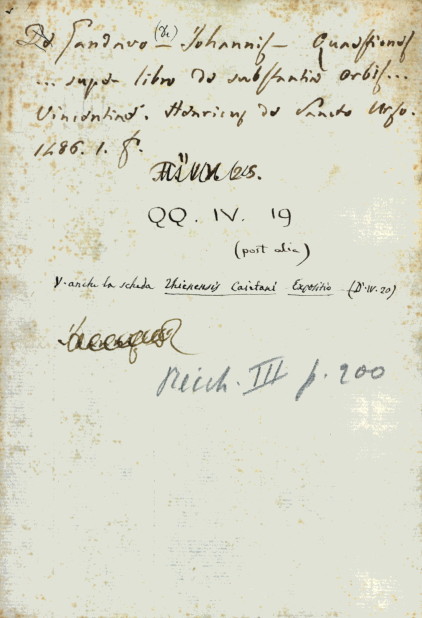 De Gandavo (de) Johannis - Quaestiones
... super libro de substantia orbis...
Vincentiae. Henricus de Sancto Urso.
1486. 1. f.
QQ. IV. 19
(post alia)
V. anche la scheda Thienensis Caietani Expositio (D. IV. 20)
Reich. III p. 200